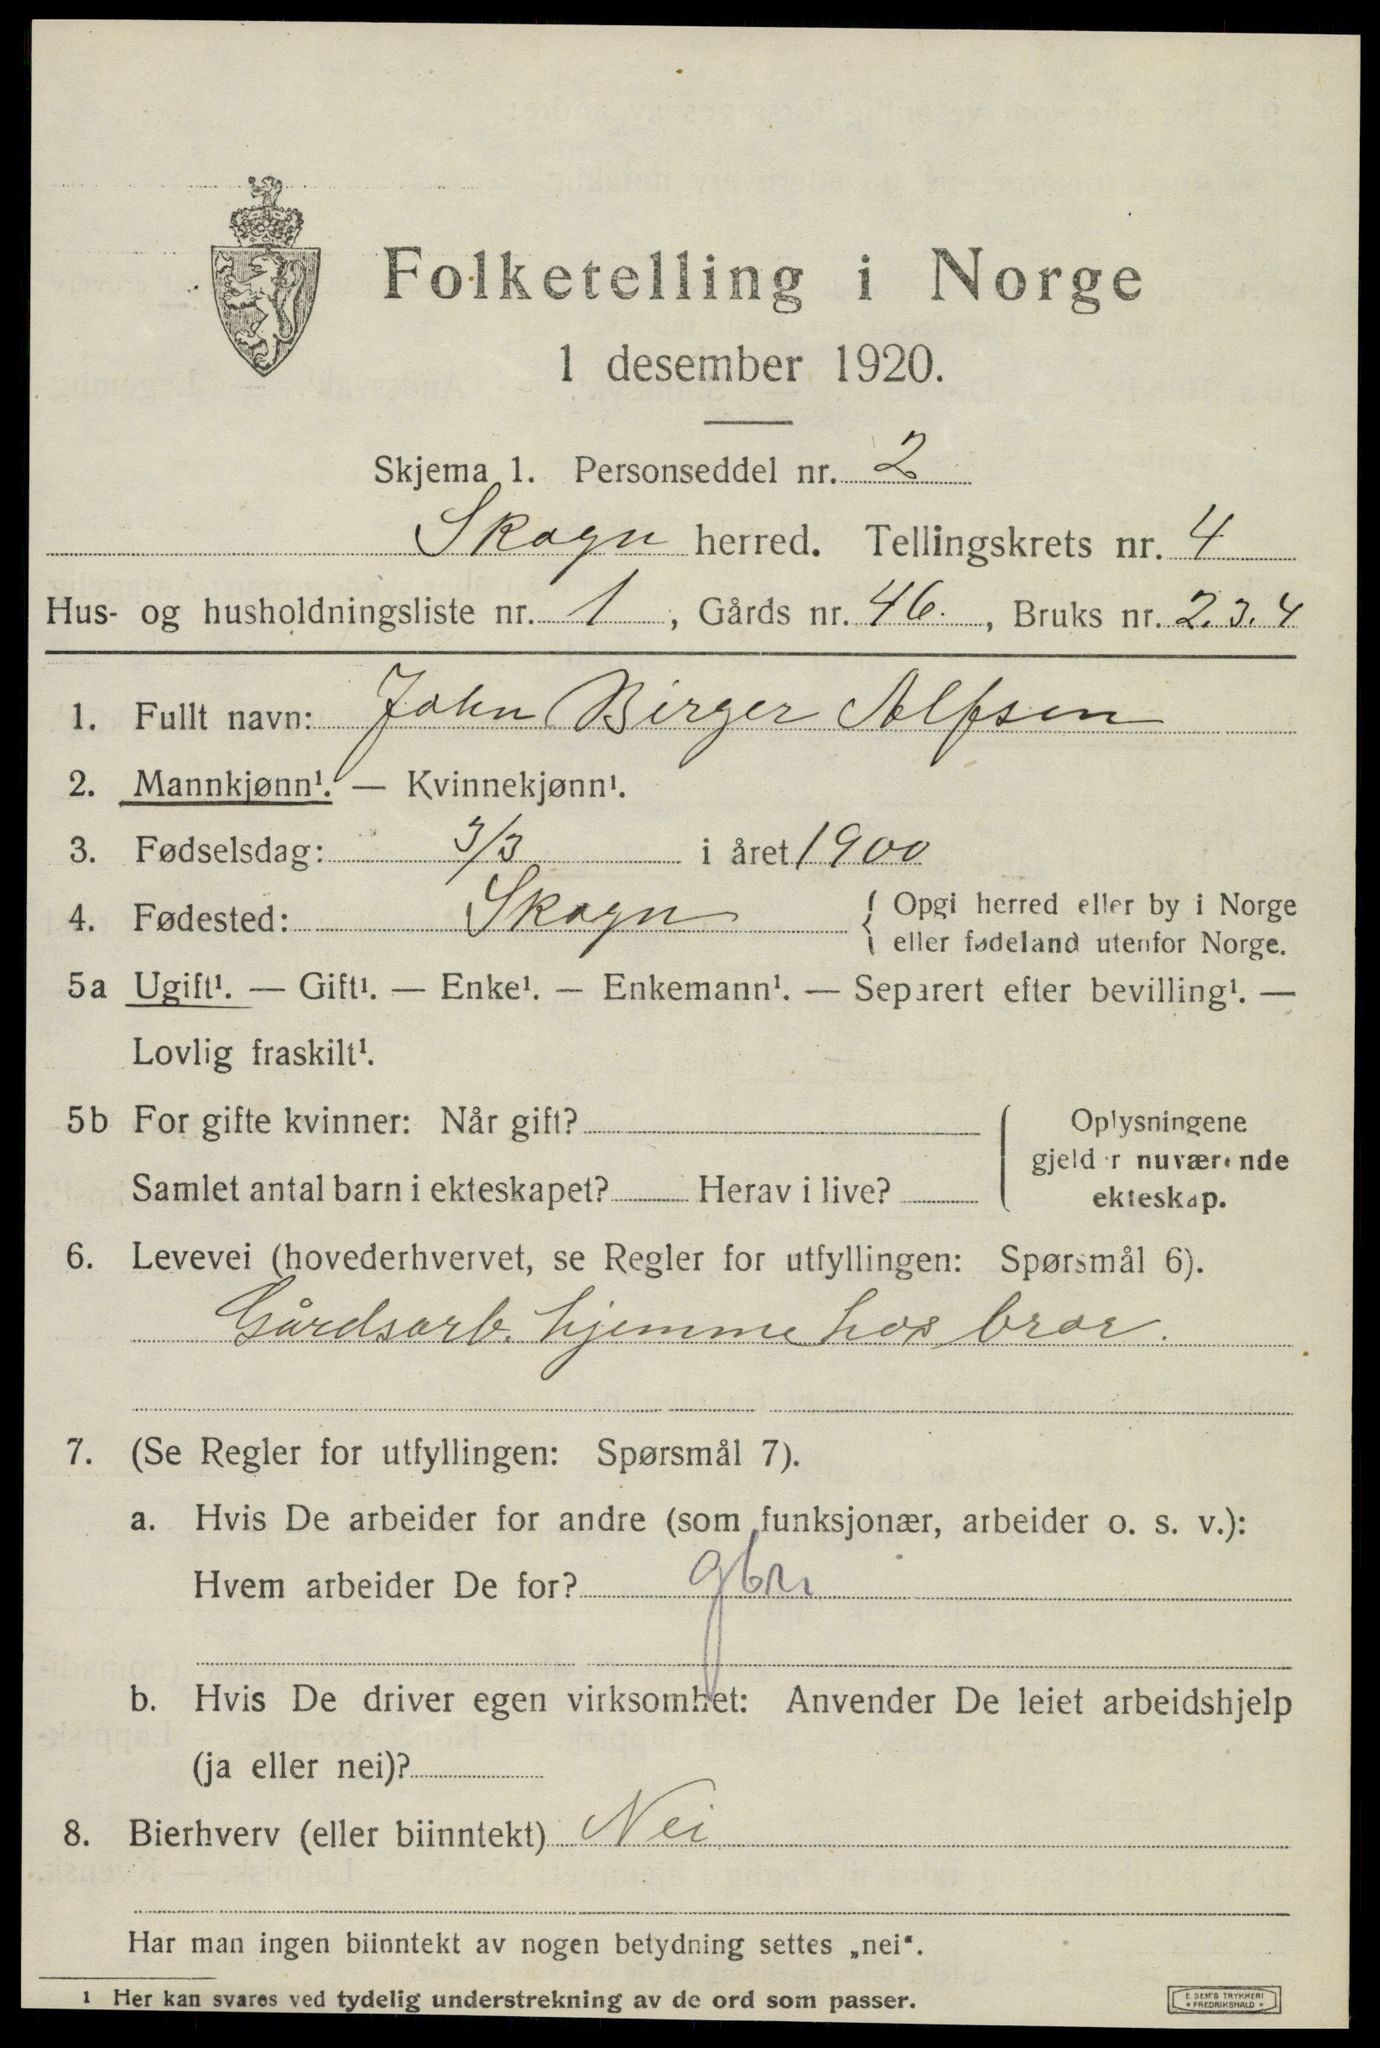 Folketelling i Norge
1 desember 1920.
Skjema 1. Personseddel nr. 2
Skogn herred. Tellingskrets nr. 4
Hus- og husholdningsliste nr. 1, Gårds nr. 46., Bruks nr. 2.3.4
1. Fullt navn: John Birger Alfsen
2. Mannkjønn¹. — Kvinnekjønn¹.
3. Fødselsdag: 3/3 i året 1900
4. Fødested: Skogn { Opgi herred eller by i Norge
eller fødeland utenfor Norge.
5a Ugift¹. — Gift¹. — Enke¹. — Enkemann¹. — Separert efter bevilling¹. —
Lovlig fraskilt¹.
5b For gifte kvinner: Når gift?
Samlet antal barn i ekteskapet? Herav i live?
Oplysningene
gjelder nuværende
ekteskap.
6. Levevei (hovederhvervet, se Regler for utfyllingen: Spørsmål 6).
Gårdsarb. hjemme hos bror.
7. (Se Regler for utfyllingen: Spørsmål 7).
a. Hvis De arbeider for andre (som funksjonær, arbeider o. s. v.):
Hvem arbeider De for?
b. Hvis De driver egen virksomhet: Anvender De leiet arbeidshjelp
(ja eller nei)?
8. Bierhverv (eller biinntekt) Nei
Har man ingen biinntekt av nogen betydning settes „nei“.
1 Her kan svares ved tydelig understrekning av de ord som passer.
E SEM'S TRYKKERI
» FREDRIKSHALD »